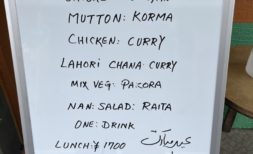 MUTTON: KORMA
CHICKEN: CURRY
LAHORI CHANA: CURRY
MIX VEG: PACORA
NAN: SALAD: RAITA
ONE: DRINK
LUNCH: ¥ 1700
عید مبارک